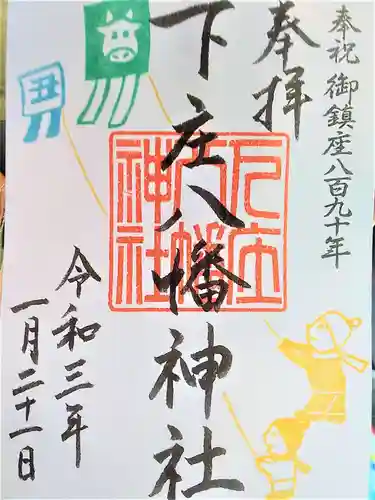 奉祝 御鎮座八百九十年
奉拝
下庄八幡神社
下庄八幡神社
令和三年
一月二十一日
丑